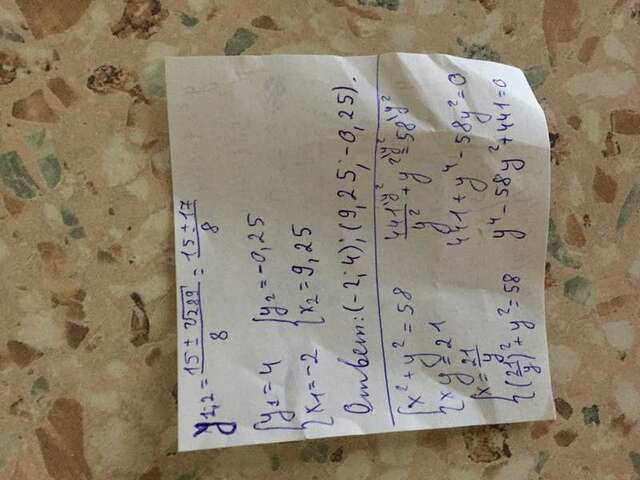 y1,2 = (15 ± √289)/8 = (15 ± 17)/8
{y1 = 4 {y2 = -0,25
{x1 = -2 {x2 = 9,25
Ответ: (-2; 4); (9,25; -0,25).
{x² + y² = 58
{xy = 21
{x = 21/y
{(21/y)² + y² = 58
441\y²/y² + y²\y² = 58\y²
441 + y⁴ - 58y² = 0
y⁴ - 58y² + 441 = 0